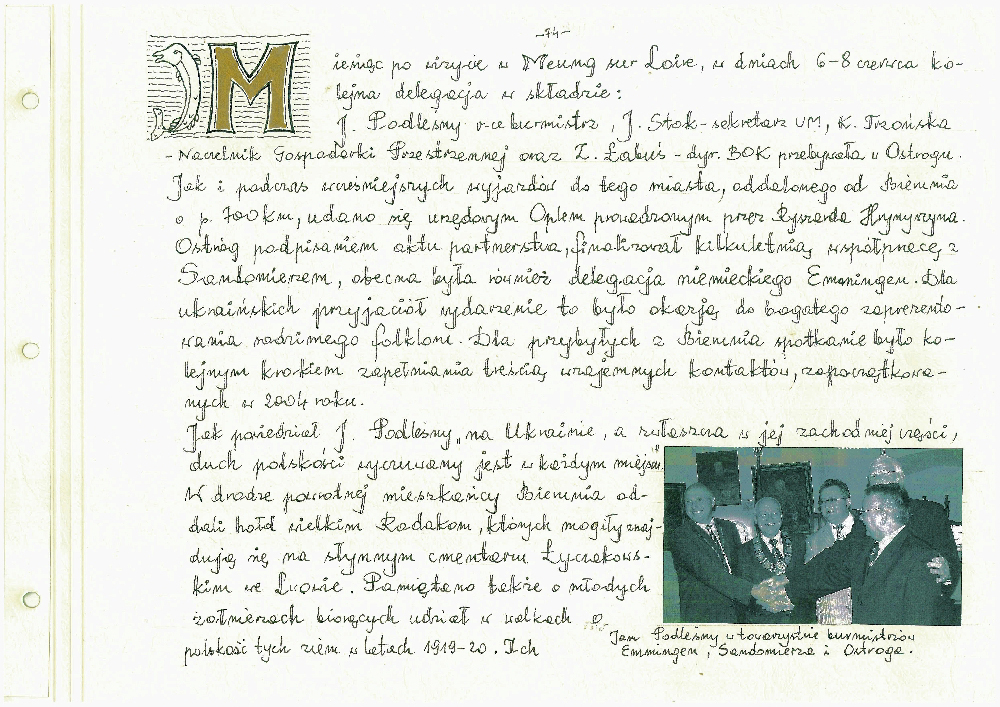 -74-
Miesiąc po wizycie w Meung sur Loire, w dniach 6-8 czerwca ko-
lejna delegacja w składzie:
J. Podleśny v-ce burmistrz, J. Stok-sekretarz UM, K. Trzońska
- Naczelnik Gospodarki Przestrzennej oraz Z. Łabuś - dyr. BOK przebywała w Ostrogu.
Jak i podczas wcześniejszych wyjazdów do tego miasta, oddalonego od Bierunia
o p. 700km, udano się urzędowym Oplem prowadzonym przez Ryszarda
Ostróg podpisaniem aktu partnerstwa, finalizował kilkuletnią współpracę z
Sandomierzem, obecna była również delegacja niemieckiego Emmingen. Dla
ukraińskich przyjaciół wydarzenie to było okazją do bogatego zaprezento-
wania rodzimego folkloru. Dla przybyłych z Bierunia spotkanie było ko-
lejnym krokiem zapełniania treścią wzajemnych kontaktów, zapoczątkowa-
nych w 2004 roku.
Jak powiedział J. Podleśny "na Ukrainie, a zwłaszcza w jej zachodniej części,
duch polskości wyczuwany jest w każdym miejscu
W drodze powrotnej mieszkańcy Bierunia od-
dali hołd wielkim Rodakom, których mogiły znaj-
dują się na słynnym cmentarzu Łyczakows-
kim we Lwowie. Pamiętano także o młodych
żołnierzach biorących udział w walkach o
polskość tych ziem w latach 1919-20. Ich
Jan Podleśny w towarzystwie burmistrzów
Emmingen, Sandomierza i Ostroga.